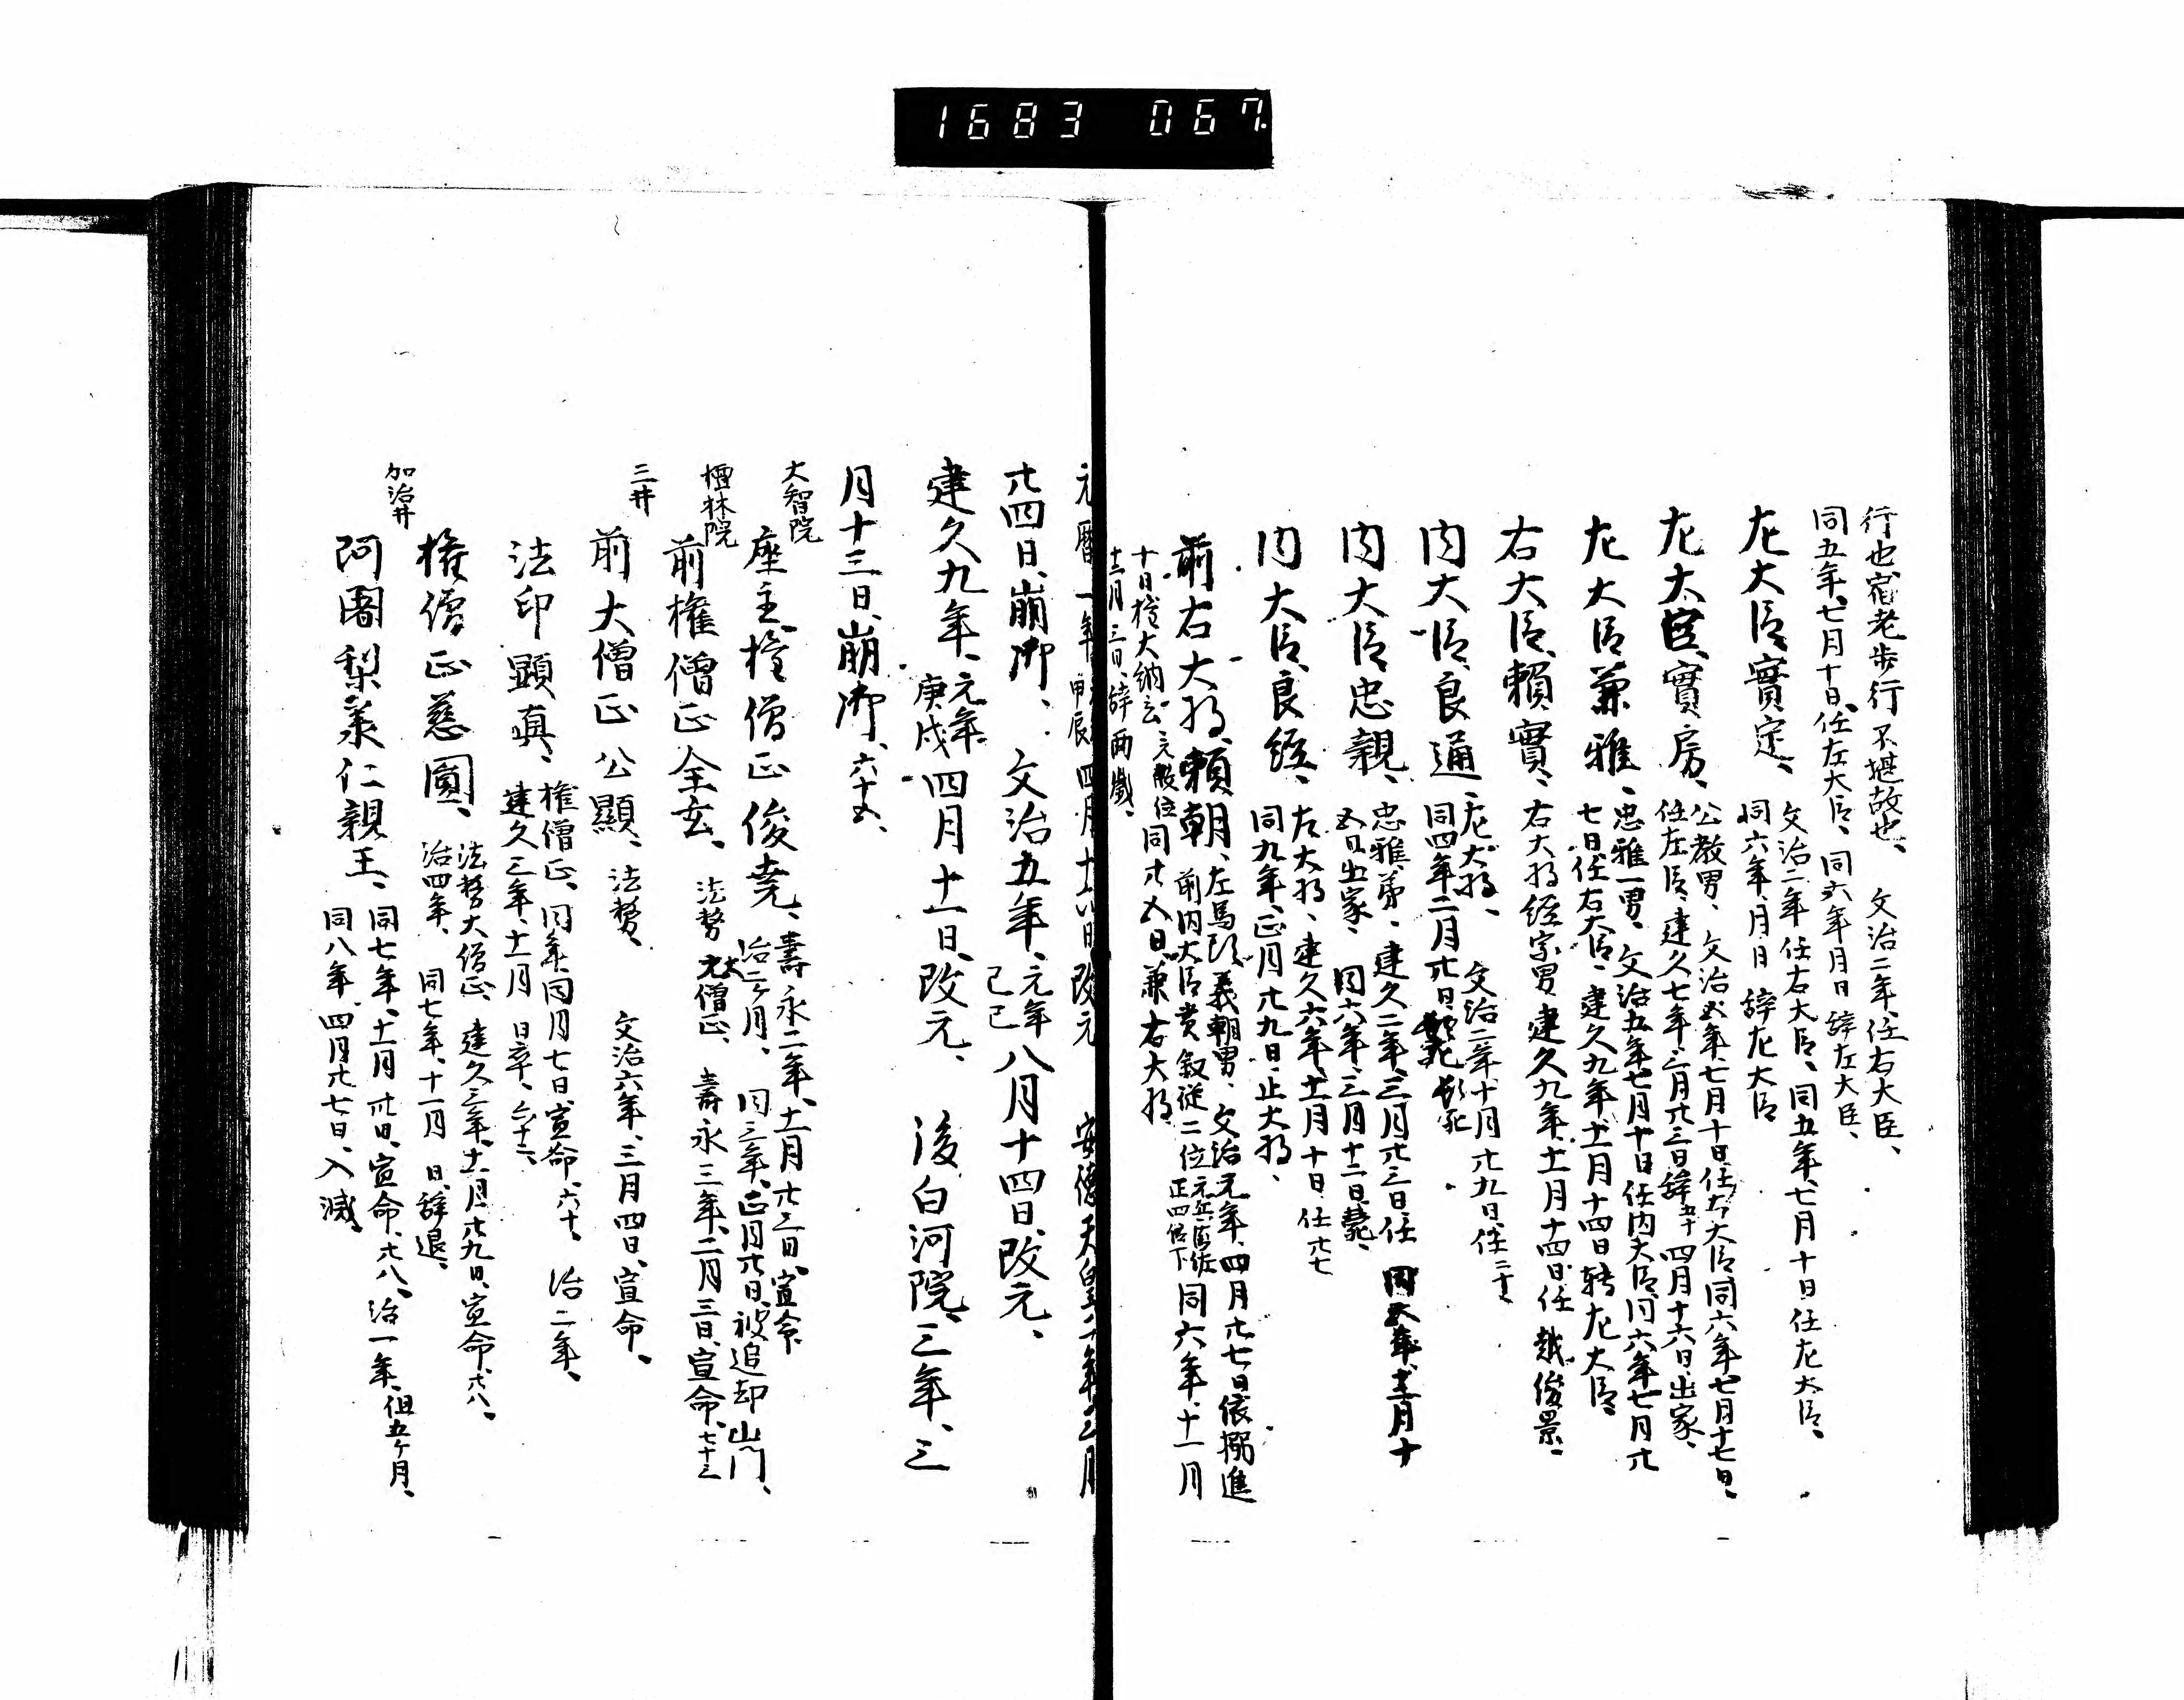 1683 067
行也宿老歩行不堪故也、 文治二年、任右大臣、
同五年、七月十日、任左大臣、同六年月日辞左大臣、
左大臣、實定、
文治二年任右大臣、同五年、七月十日任左大臣、
同六年、月日辞左大臣
左大臣、實房、
公教男、文治五年、七月十日、任右大臣同六年七月十七日、
任左臣、建久七年、三月廿三日辞五十四月十六日、出家、
左大臣兼雅、
忠雅一男、文治五年七月十日任内大臣、同六年七月十
七日、任右大臣、建久九年、十一月十四日転左大臣
右大臣、頼實、
右大将経宗男、建久九年、十一月十四日任
内大臣、良通、
左大将、文治二年十月廿九日、任二十
同四年二月廿日
内大臣、忠親、
忠雅弟、建久二年、三月廿三日、任
五日出家、同六年、三月十二日、薨、
内大臣、良経、
左大将、建久六年、十一月十日任廿七
同九年、正月廿九日、止大将、
前右大将、頼朝、
左馬頭義朝男、文治元年、四月廿七日依搦進
前内大臣賞叙従二位元兵衛佐正四位下同六年、十一月
十日、権大納言元散位同廿五日兼右大将、
十二月三日、辞両職、
元暦一年甲辰四月十六日改元 安徳天皇
廿四日、崩御、 文治五年、元年己巳八月十四日、改元、
建久九年、元年庚戌四月十一日、改元、 後白河院、三年、三
月十三日、崩御、六十五、
大智院
座主、権僧正俊尭、
壽永二年、十一月廿三日、宣命
治二ヶ月、同三年、正月廿日、被追却山門、
檀林院
前権僧正全玄、
法務 大僧正、壽永三年、二月三日、宣命、七十二
三井
前大僧正公顯、法務、 文治六年、三月四日、宣命、
法印顯真、
権僧正、同年同月七日宣命、六十、治二年、
建久三年、十一月 日卒、六十二、
権僧正慈圓、
法務大僧正、建久三年、十一月廿九日、宣命、卅八、
治四年、同七年、十一月 日、辞退、
加治井
阿闍梨承仁親王、
同七年、十一月卅日、宣命、廿八、治一年、但五ヶ月、
同八年、四月廿七日、入滅、